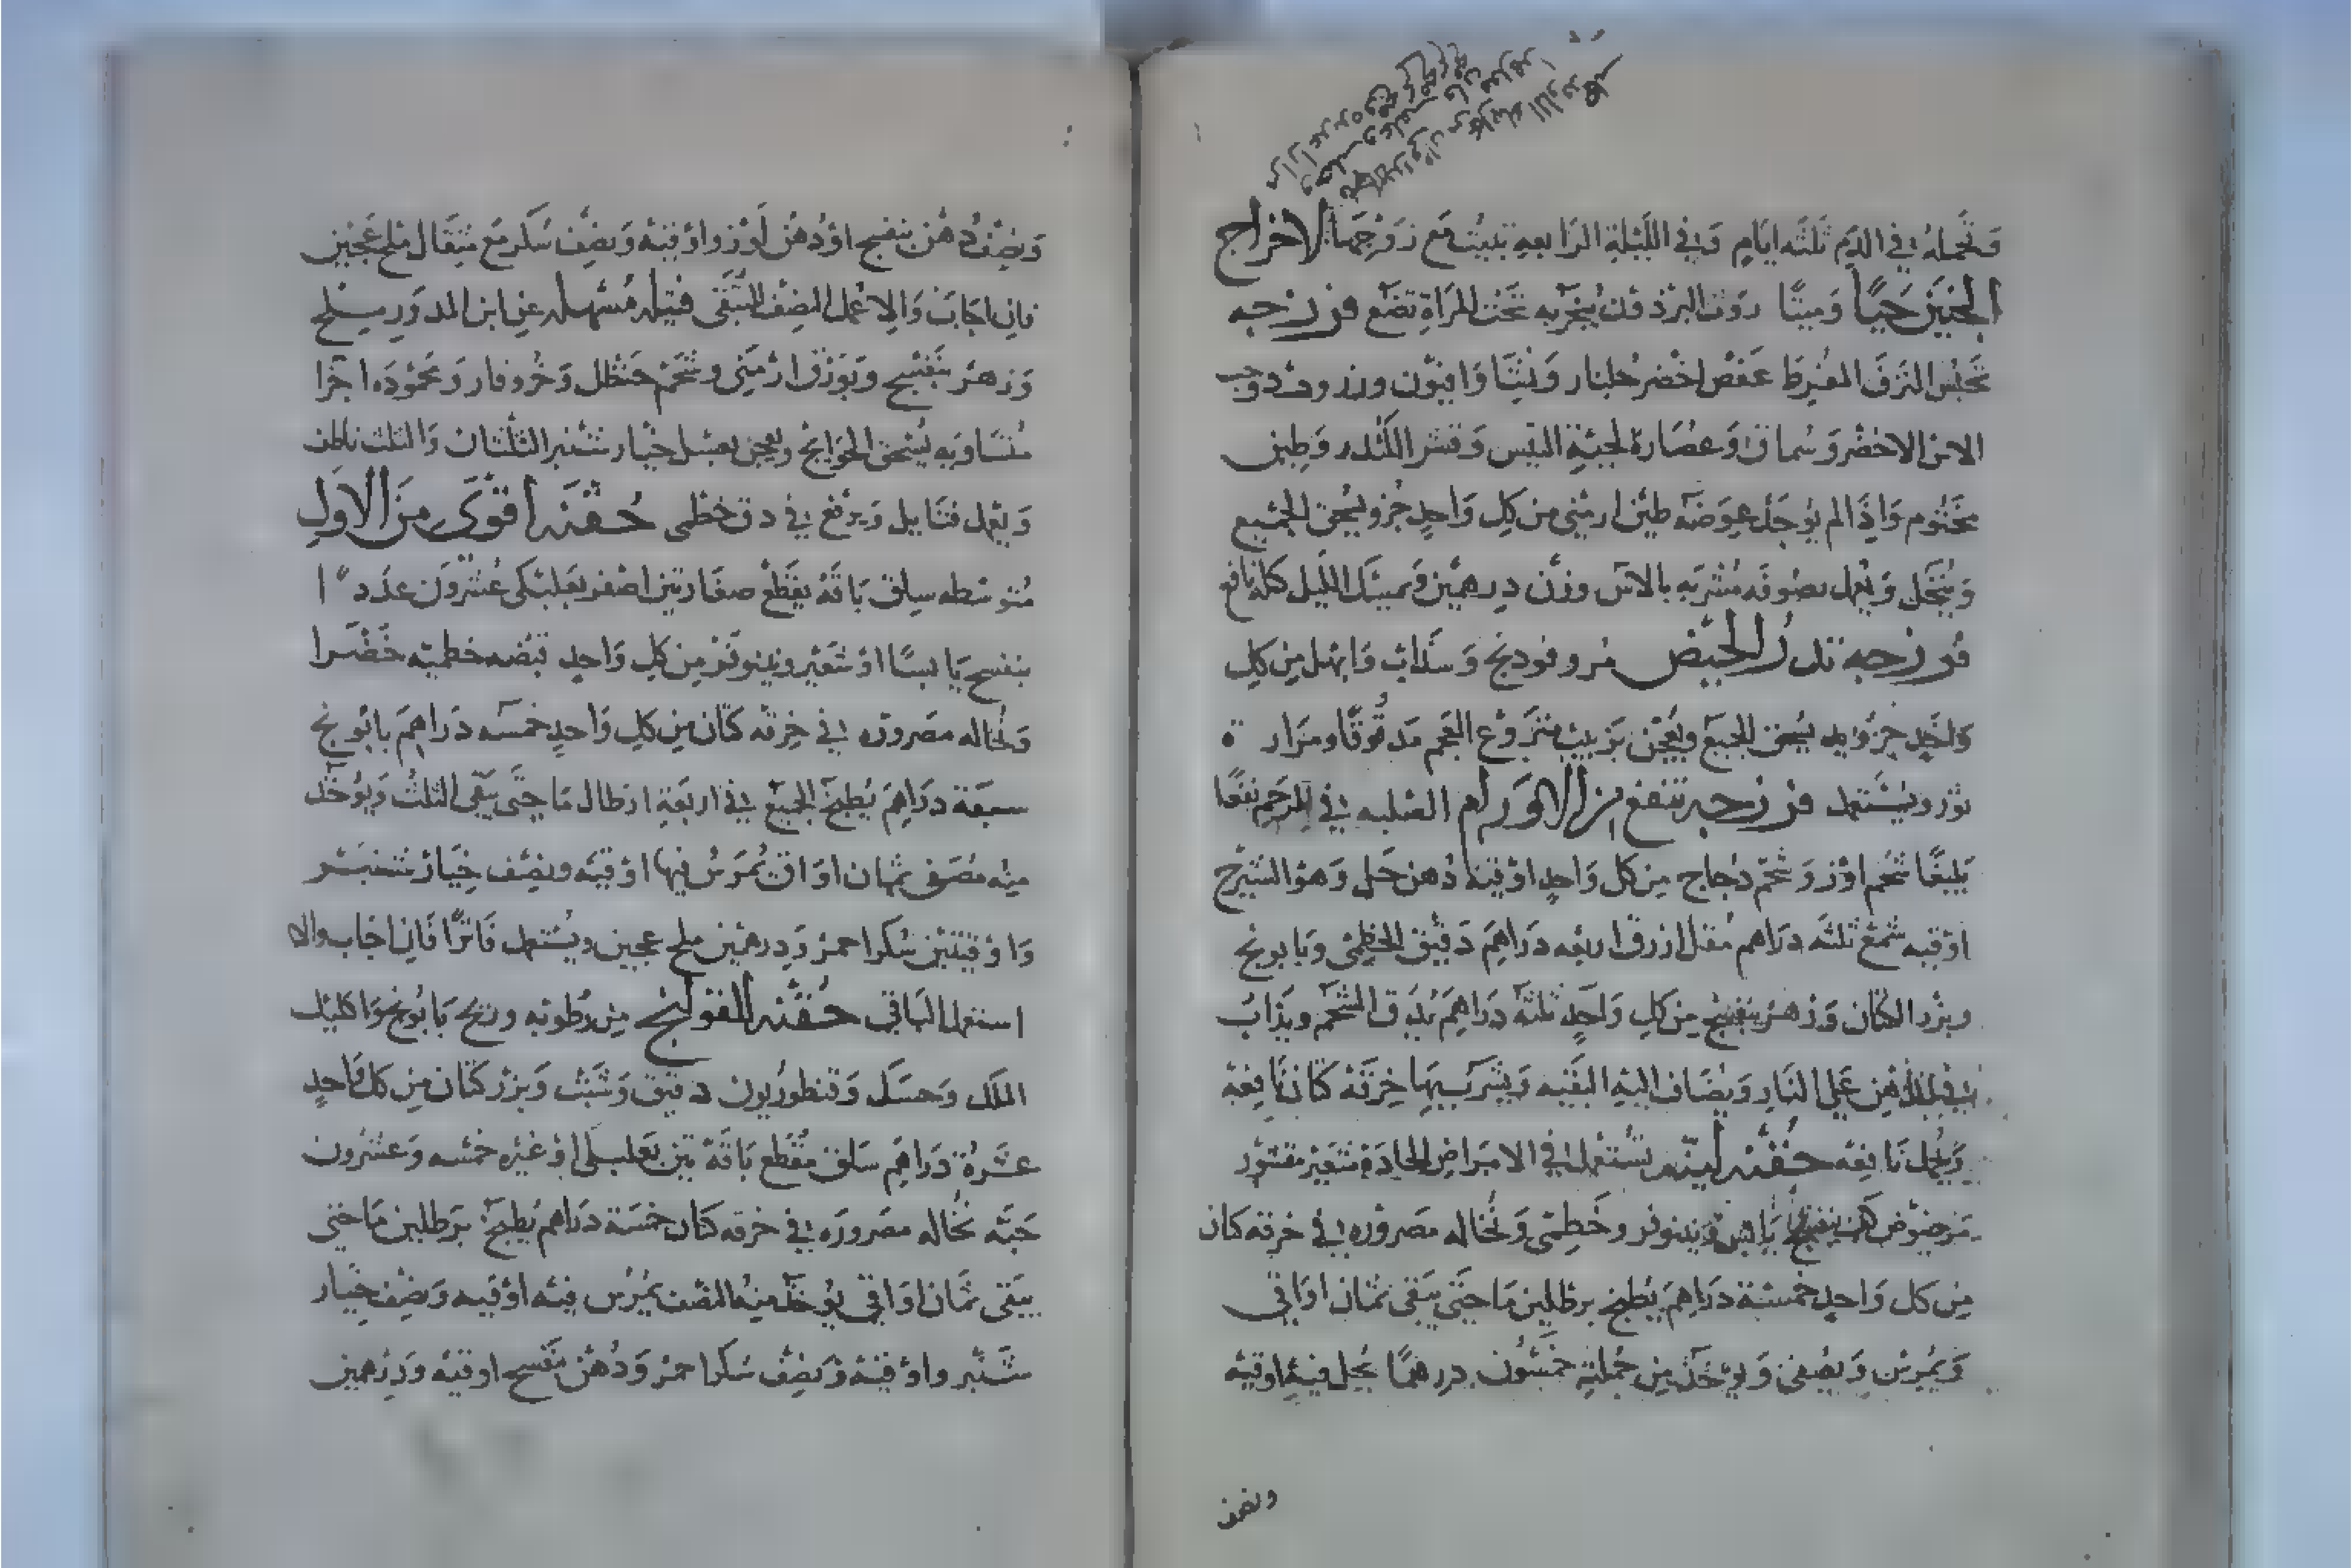 وتحمله في الدم ثلثه ايام وفي الليلة الرابعه تبيت مع زوجها لاخراج
الجنين حيا وميتا روث البرذون يبخر به تحت المراة تضع فرزجه
تحبس النزف المفرط عفص اخضر جلنار ونشا وافيون وحب
الاس الاخضر وسماق وعصارة لحية التيس وقشر الكندر وطين
مختوم واذا لم يوجد عوضه طين ارمني من كل واحد جزو يسحق الجميع
وينخل ويعمل بصوفه مشربه بالاس وزن درهمين ويمسك الليل كله نافع
فرزجه تدر الحيض مر وفودنج وسذاب وابهل من كل
واحد جزو يسحق الجميع ويعجن بزبيب منزوع العجم مدقوقا ومرارة
ثور ويستعمل فرزجه تنفع من الاورام الصلبه في الرحم نفعا
بليغا شحم اوز وشحم دجاج من كل واحد اوقية دهن حل وهو الشيرج
اوقيه شمع ثلثه دراهم مقل ازرق اربعه دراهم دقيق الخطمي وبابونج
وبزر الكتان وزهر بنفسج من كل واحد ثلثه دراهم يدق الشحم ويذاب
في الدهن على النار ويضاف اليه البقيه ويشرب بها خرقة كتان نافعة
ويحمل نافعه حقنه لينه تستعمل في الامراض الحادة شعير مقشور
مرضوض بنفسج يابس ونينوفر وخطمي ونخاله مصروره في خرقه كتان
من كل واحد خمسة دراهم يطبخ برطلين ما حتى يبقى ثمان اواقي
ويمرس ويصفى ويؤخذ من جملته خمسون درهما يحل فيه اوقيه
ونصف
ونصف دهن بنفسج او دهن لوز واوقيه ونصف سكر مع مثقال ملح عجين
فان اجابت والا عمل النصف المتبقى فتيله مسهله عن ابن المدور سلح
وزهر بنفسج وبورق ارمني وشحم حنظل وخرو فار ومحموده اجزا
متساويه يسحق الحوايج ويعجن بعسل خيار شنبر الثلثان والثلث ناطف
ويعمل فتايل ويرفع في دق خطمي حقنه اقوى من الاول
متوسطه سلق باقه يقطع صغار تين اصفر بعلبكي عشرون عددا
بنفسج يابسا او شعير ونينوفر من كل واحد قبضه خطميه خضرا
ونخاله مصروره في خرقه كتان من كل واحد خمسه دراهم بابونج
سبعة دراهم يطبخ الجميع في اربعة ارطال ما حتى يبقى الثلث ويؤخذ
منه مصفى ثمان اواق يمرس فيها اوقيه ونصف خيار شنبر
واوقيتين سكر احمر ودرهمين ملح عجين ويستعمل فاترا فان اجاب والا
استعمل الباقي حقنه للقولنج من رطوبه وريح بابونج واكليل
الملك وحسك وقنطوريون دقيق وشبت وبزر كتان من كل واحد
عشرة دراهم سلق مقطع باقة تين بعلبكي او غيره خمسه وعشرون
حبه نخاله مصروره في خرقه كتان خمسة دراهم يطبخ برطلين ما حتى
يبقى ثمان اواقي يؤخذ منه النصف يمرس فيه اوقيه ونصف خيار
شنبر واوقية ونصف سكر احمر ودهن بنفسج اوقيه ودرهمين